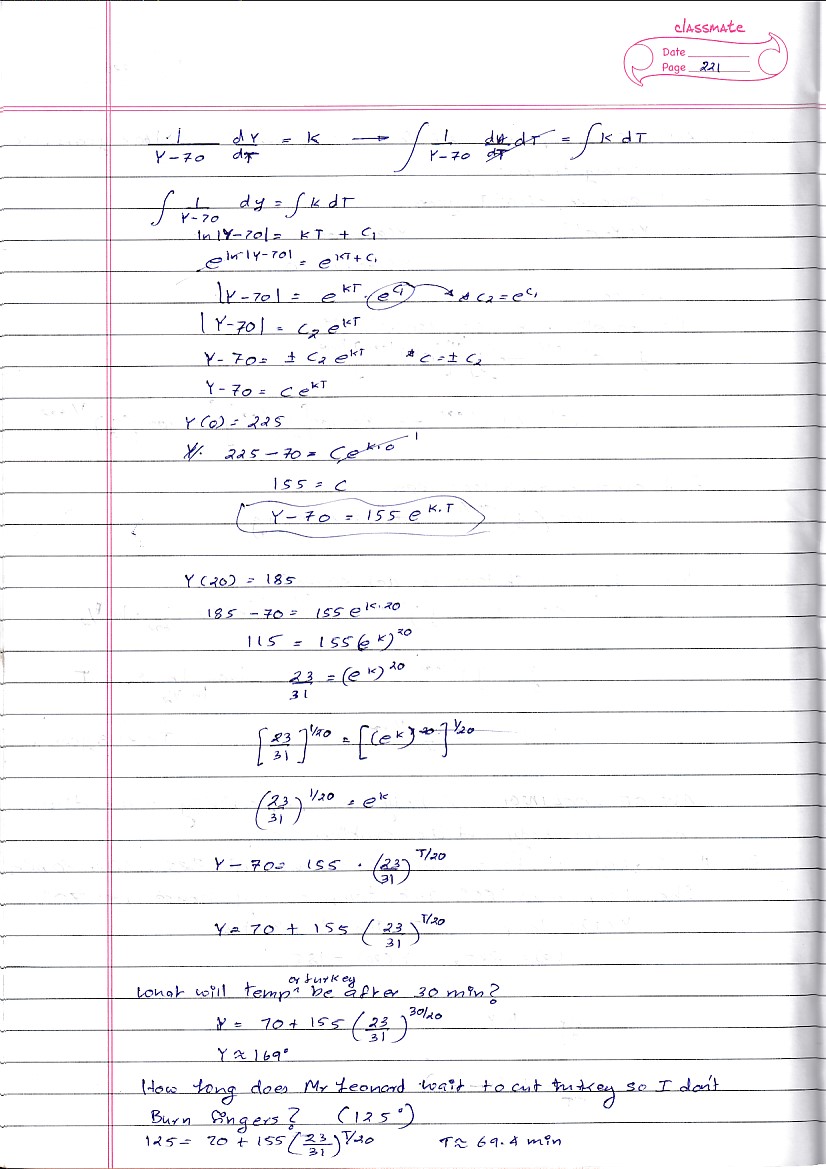 classmate
Date
Page 221
1/(Y-70) dY/dT = K → ∫ 1/(Y-70) dy/dT dT = ∫ K dT
∫ 1/(Y-70) dy = ∫ K dT
ln|Y-70| = KT + C₁
e^(ln|Y-70|) = e^(KT+C₁)
|Y-70| = e^(KT) · e^(C₁) → * C₂ = e^(C₁)
|Y-70| = C₂ e^(KT)
Y-70 = ± C₂ e^(KT) * C = ± C₂
Y-70 = C e^(KT)
Y(0) = 225
225-70 = C e^(K·0) 1
155 = C
Y-70 = 155 e^(K.T)
Y(20) = 185
185-70 = 155 e^(K·20)
115 = 155(e^K)^20
23/31 = (e^K)^20
[23/31]^(1/20) = [(e^K)^20]^(1/20)
(23/31)^(1/20) = e^K
Y-70 = 155 · (23/31)^(T/20)
Y = 70 + 155 (23/31)^(T/20)
What will temp of turkey be after 30 min?
Y = 70 + 155 (23/31)^(30/20)
Y ≈ 169°
How long does Mr Leonard wait to cut turkey so I don't
Burn fingers? (125°)
125 = 70 + 155 (23/31)^(T/20) T ≈ 69.4 min